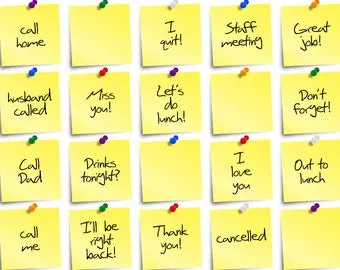 call
home
I
quit!
Staff
meeting
Great
job!
husband
called
Miss
you!
Let's
do
lunch!
Don't
forget!
Call
Dad
Drinks
tonight?
I
love
you
Out to
lunch
call
me
I'll be
right
back!
Thank
you!
cancelled